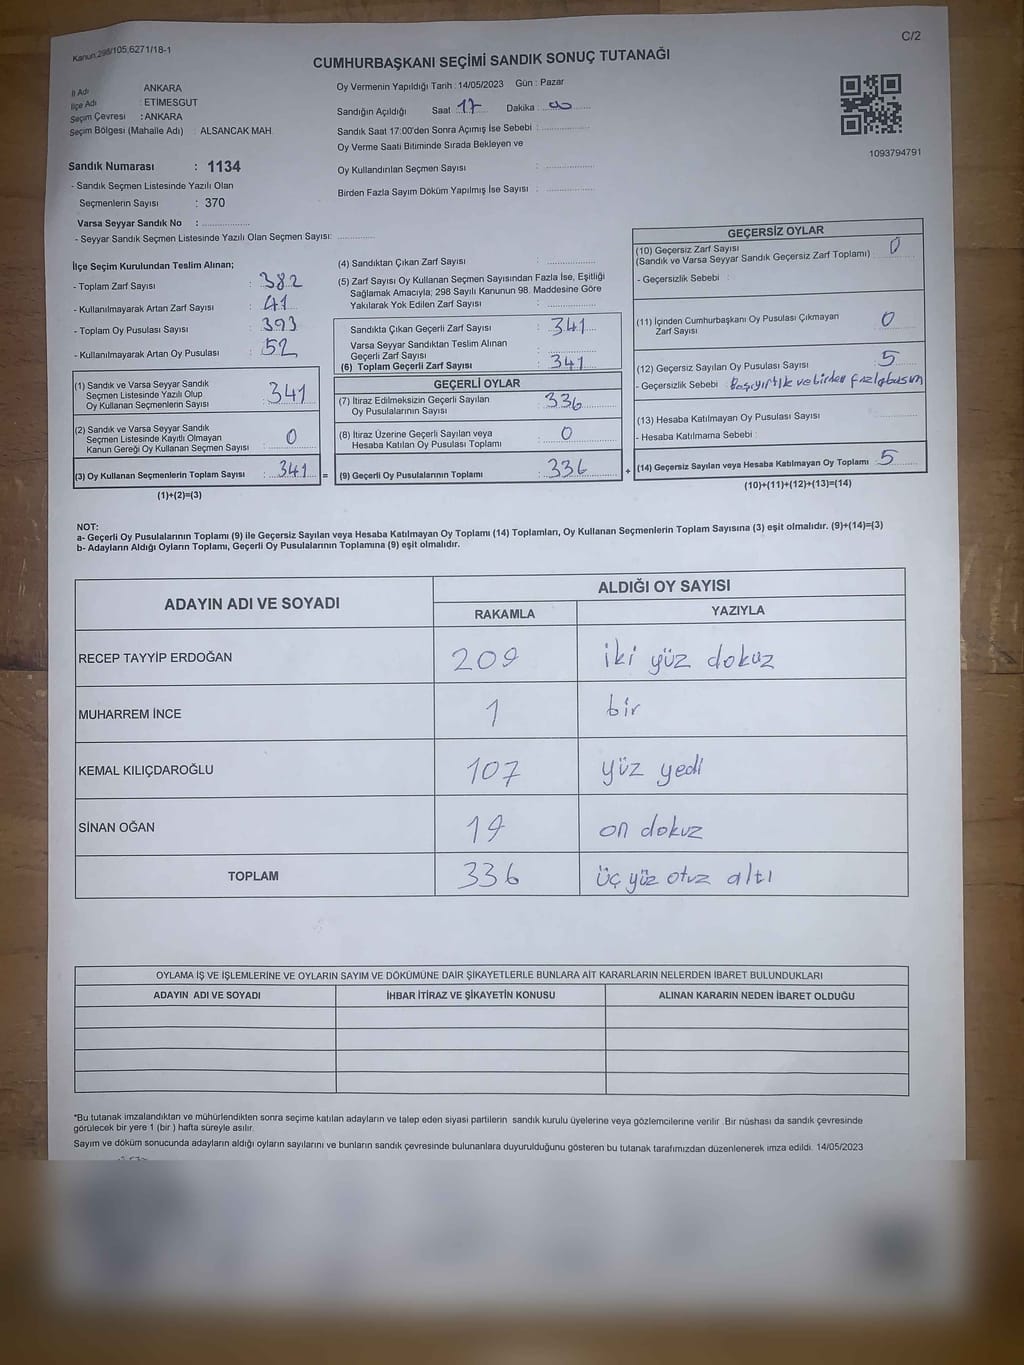 Kanun.298/105,6271/18-1
C/2
CUMHURBAŞKANI SEÇİMİ SANDIK SONUÇ TUTANAĞI
İl Adı ANKARA
İlçe Adı : ETİMESGUT
Seçim Çevresi : ANKARA
Seçim Bölgesi (Mahalle Adı) : ALSANCAK MAH.
Oy Vermenin Yapıldığı Tarih : 14/05/2023 Gün : Pazar
Sandığın Açıldığı Saat 17 Dakika :
Sandık Saat 17:00'den Sonra Açımış İse Sebebi :
Oy Verme Saati Bitiminde Sırada Bekleyen ve
Oy Kullandırılan Seçmen Sayısı :
Birden Fazla Sayım Döküm Yapılmış İse Sayısı :
1093794791
Sandık Numarası : 1134
- Sandık Seçmen Listesinde Yazılı Olan
Seçmenlerin Sayısı : 370
Varsa Seyyar Sandık No :
- Seyyar Sandık Seçmen Listesinde Yazılı Olan Seçmen Sayısı:
İlçe Seçim Kurulundan Teslim Alınan;
- Toplam Zarf Sayısı : 382
- Kullanılmayarak Artan Zarf Sayısı : 41
- Toplam Oy Pusulası Sayısı : 393
- Kullanılmayarak Artan Oy Pusulası : 52
(1) Sandık ve Varsa Seyyar Sandık
Seçmen Listesinde Yazılı Olup
Oy Kullanan Seçmenlerin Sayısı : 341
(2) Sandık ve Varsa Seyyar Sandık
Seçmen Listesinde Kayıtlı Olmayan
Kanun Gereği Oy Kullanan Seçmen Sayısı : 0
(3) Oy Kullanan Seçmenlerin Toplam Sayısı : 341 =
(1)+(2)=(3)
(4) Sandıktan Çıkan Zarf Sayısı :
(5) Zarf Sayısı Oy Kullanan Seçmen Sayısından Fazla İse, Eşitliği
Sağlamak Amacıyla; 298 Sayılı Kanunun 98. Maddesine Göre
Yakılarak Yok Edilen Zarf Sayısı :
Sandıkta Çıkan Geçerli Zarf Sayısı : 341
Varsa Seyyar Sandıktan Teslim Alınan
Geçerli Zarf Sayısı :
(6) Toplam Geçerli Zarf Sayısı : 341
GEÇERLİ OYLAR
(7) İtiraz Edilmeksizin Geçerli Sayılan
Oy Pusulalarının Sayısı : 336
(8) İtiraz Üzerine Geçerli Sayılan veya
Hesaba Katılan Oy Pusulası Toplamı : 0
(9) Geçerli Oy Pusulalarının Toplamı : 336 +
GEÇERSİZ OYLAR
(10) Geçersiz Zarf Sayısı
(Sandık ve Varsa Seyyar Sandık Geçersiz Zarf Toplamı) : 0
- Geçersizlik Sebebi :
(11) İçinden Cumhurbaşkanı Oy Pusulası Çıkmayan
Zarf Sayısı : 0
(12) Geçersiz Sayılan Oy Pusulası Sayısı : 5
- Geçersizlik Sebebi : ve birden fazla
(13) Hesaba Katılmayan Oy Pusulası Sayısı :
- Hesaba Katılmama Sebebi :
(14) Geçersiz Sayılan veya Hesaba Katılmayan Oy Toplamı : 5
(10)+(11)+(12)+(13)=(14)
NOT:
a- Geçerli Oy Pusulalarının Toplamı (9) ile Geçersiz Sayılan veya Hesaba Katılmayan Oy Toplamı (14) Toplamları, Oy Kullanan Seçmenlerin Toplam Sayısına (3) eşit olmalıdır. (9)+(14)=(3)
b- Adayların Aldığı Oyların Toplamı, Geçerli Oy Pusulalarının Toplamına (9) eşit olmalıdır.
ADAYIN ADI VE SOYADI
ALDIĞI OY SAYISI
RAKAMLA YAZIYLA
RECEP TAYYİP ERDOĞAN 209 iki yüz dokuz
MUHARREM İNCE 1 bir
KEMAL KILIÇDAROĞLU 107 yüz yedi
SİNAN OĞAN 19 on dokuz
TOPLAM 336 üç yüz otuz altı
OYLAMA İŞ VE İŞLEMLERİNE VE OYLARIN SAYIM VE DÖKÜMÜNE DAİR ŞİKAYETLERLE BUNLARA AİT KARARLARIN NELERDEN İBARET BULUNDUKLARI
ADAYIN ADI VE SOYADI İHBAR İTİRAZ VE ŞİKAYETİN KONUSU ALINAN KARARIN NEDEN İBARET OLDUĞU
*Bu tutanak imzalandıktan ve mühürlendikten sonra seçime katılan adayların ve talep eden siyasi partilerin sandık kurulu üyelerine veya gözlemcilerine verilir. Bir nüshası da sandık çevresinde
görülecek bir yere 1 (bir ) hafta süreyle asılır.
Sayım ve döküm sonucunda adayların aldığı oyların sayılarını ve bunların sandık çevresinde bulunanlara duyurulduğunu gösteren bu tutanak tarafımızdan düzenlenerek imza edildi. 14/05/2023